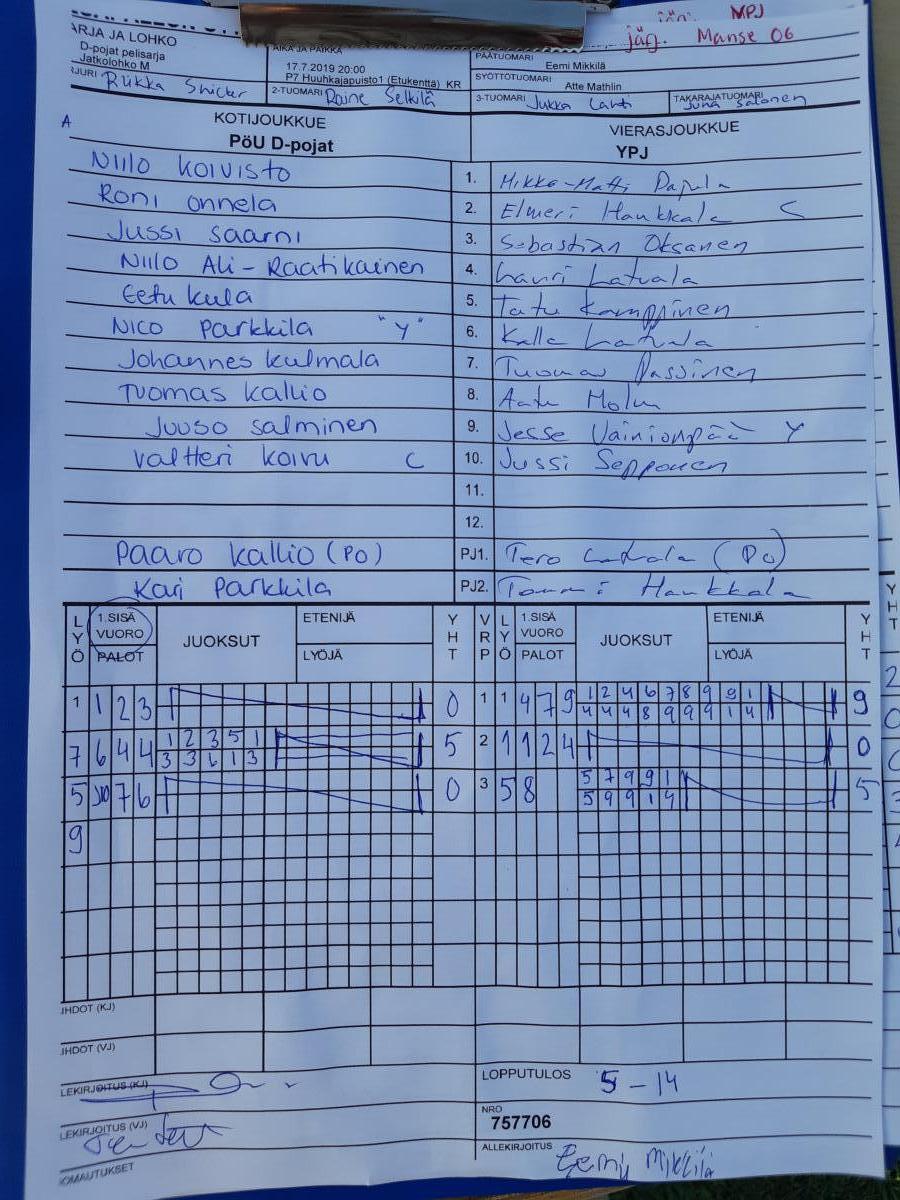 järj. MPJ
järj. Manse 06
ARJA JA LOHKO
D-pojat pelisarja
Jatkolohko M
AIKA JA PAIKKA
17.7.2019 20:00
P7 Huuhkajapuisto1 (Etukenttä) KR
PÄÄTUOMARI
Eemi Mikkilä
SYÖTTÖTUOMARI
Atte Mathlin
JURI Riikka
2-TUOMARI Raine Selkilä
3-TUOMARI Jukka Lahti
TAKARAJATUOMARI Juha Salonen
A
KOTIJOUKKUE
PöU D-pojat
VIERASJOUKKUE
YPJ
Niilo Koivisto 1. Mikko-Matti Pajula
Roni Onnela 2. Elmeri Haukkala C
Jussi Saarni 3. Sebastian Oksanen
Niilo Ali-Raatikainen 4. Lauri Latvala
Eetu Kula 5. Tatu Kamppinen
Nico Parkkila "Y" 6. Kalle Latvala
Johannes Kulmala 7. Tuomas Passinen
Tuomas Kallio 8. Aatu Holm
Juuso Salminen 9. Jesse Vainionpää Y
Valtteri Koivu C 10. Jussi Sepponen
11.
12.
Paaro Kallio (PO) PJ1. Tero Latvala (PO)
Kari Parkkila PJ2. Tommi Haukkala
LYÖ 1.SISÄ VUORO PALOT JUOKSUT ETENIJÄ LYÖJÄ YHT VRP LYÖ 1.SISÄ VUORO PALOT JUOKSUT ETENIJÄ LYÖJÄ YHT
1 1 2 3 0 1 1 4 7 9 1 2 4 6 7 8 9 9 1 9
4 4 4 8 9 9 9 1 4
7 6 4 4 1 2 3 5 1 5 2 1 1 2 4 0
3 3 6 1 3
5 10 7 6 0 3 5 8 5 7 9 9 1 5
5 9 9 1 4
9
JHDOT (KJ)
JHDOT (VJ)
LEKIRJOITUS (KJ)
LOPPUTULOS 5 - 14
LEKIRJOITUS (VJ)
NRO
757706
ALLEKIRJOITUS Eemi Mikkilä
OMAUTUKSET